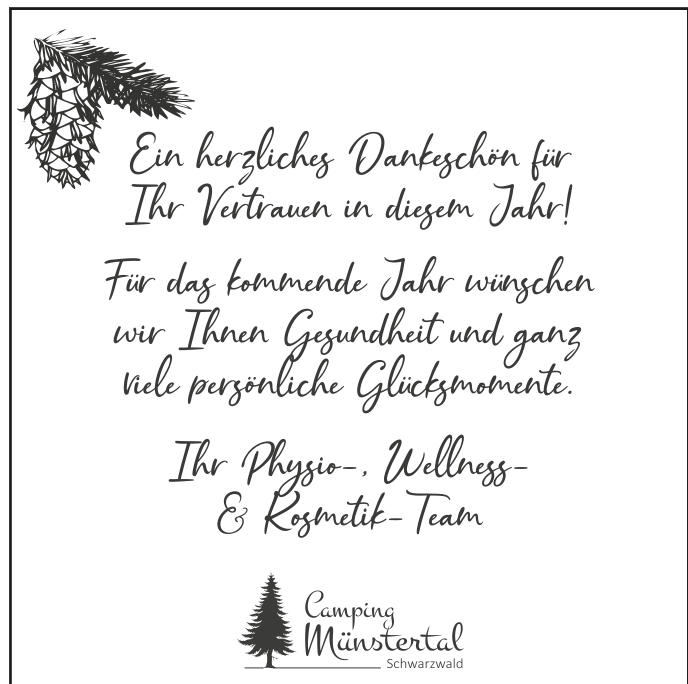 Ein herzliches Dankeschön für
Ihr Vertrauen in diesem Jahr!
Für das kommende Jahr wünschen
wir Ihnen Gesundheit und ganz
viele persönliche Glücksmomente.
Ihr Physio-, Wellness-
& Kosmetik-Team
Camping
Münstertal
Schwarzwald